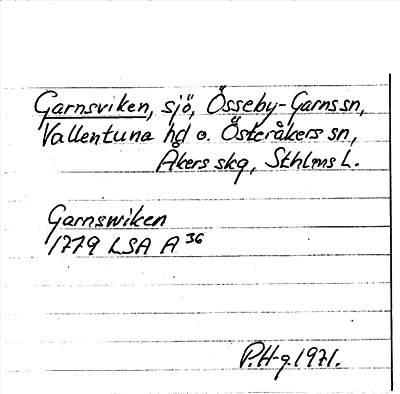 Garnsviken, sjö, Össeby-Garns sn,
Vallentuna hd o. Österåkers sn,
Åkers skg, Sthlms L.
Garnswiken
1779 LSA A 36
P.H-g. 1971.